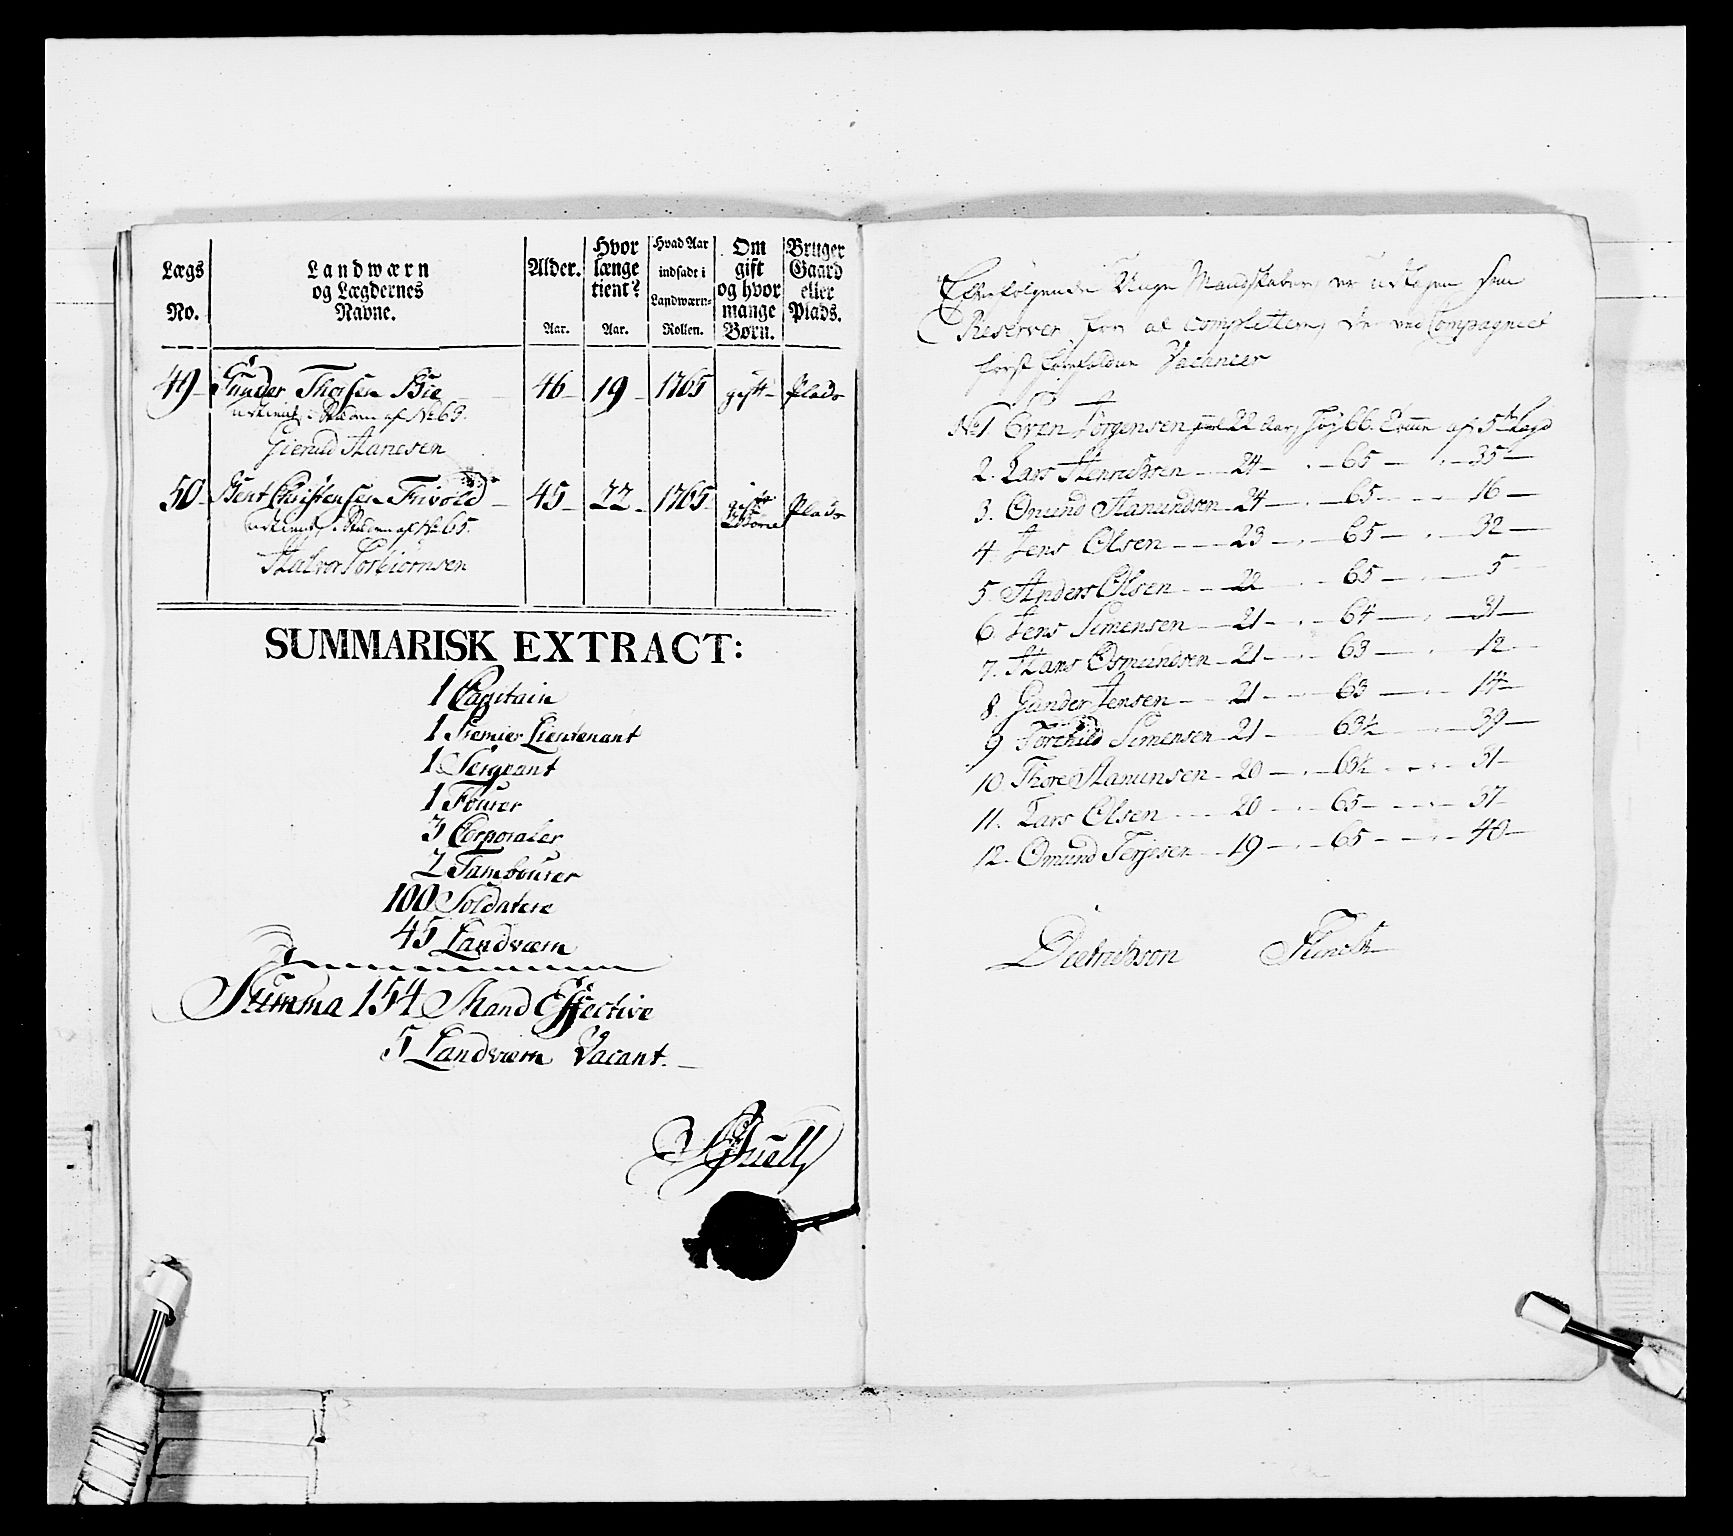 Lægs No.
Landwærn og Lægdernes Navne.
Alder. Aar.
Hvor længe tient? Aar.
Hvad Aar indsadt i Landwærn-Rollen.
Om gift og hvor mange Børn.
Bruger Gaard eller Plads.
49 Gunder Thorsen Bie 46 19 1765 gift Plads
af No 63.
Gierulf Hansen
50 Bent Christensen Frivold 45 22 1765 gift Plads
af No 65.
Halvor Torbiørnsen
SUMMARISK EXTRACT:
1 Capitain
1 Premier Lieutenant
1 Sergeant
1 Fourer
3 Corporaler
2 Tambourer
100 Soldatere
45 Landværn
Summa 154 Mand Effective
5 Landværn Vacant.
Efterfølgende Unge Mandskaber, er udtagen som
Reserver, for at complettere, de ved Compagniet
først forefaldne Vacancer
No 1. Even Jørgensen 22 Aar, høy 66. Tomer af 5te Lægd
2. Lars Henrichsen 24 65 35
3. Omund Aamundsen 24 65 16
4. Jens Olsen 23 65 32
5. Anders Olsen 22 65 5
6. Jens Simensen 21 64 21
7. Hans Osmundsen 21 63 12
8. Gunder Jensen 21 63 14
9. Torchild Simensen 21 63½ 39
10. Thore Aanunsen 20 63½ 31
11. Lars Olsen 20 65 37
12. Omund Terjesen 19 65 40
Dietrichson